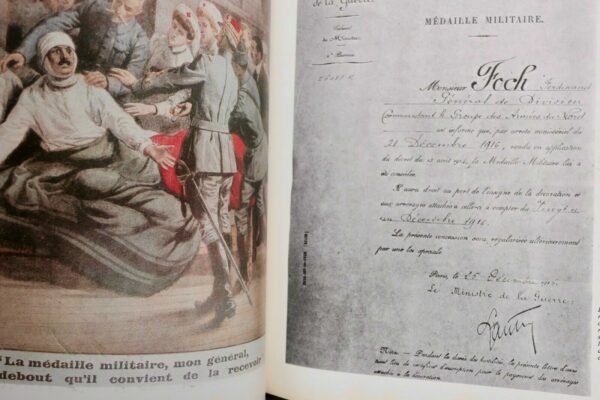 La médaille militaire, mon général,
debout qu'il convient de la recevoir
de la Guerre.
MÉDAILLE MILITAIRE.
Monsieur Foch Ferdinand
Général de Division
Commandant le Groupe des Armées du Nord
est informé que, par arrêté ministériel du
21 Décembre 1916, rendu en application
du décret du 13 août 1914, la Médaille Militaire lui a
été conférée.
Il aura droit au port de l'insigne de la décoration et
aux arrérages attachés à celle-ci à compter du Vingt et
un Décembre 1916.
La présente concession sera régularisée ultérieurement
par une loi spéciale.
Paris, le 25 Décembre
Le Ministre de la Guerre,
Nota. — Pendant la durée des hostilités, la présente lettre d'avis
tient lieu de certificat d'inscription pour le payement des arrérages
attachés à la décoration.